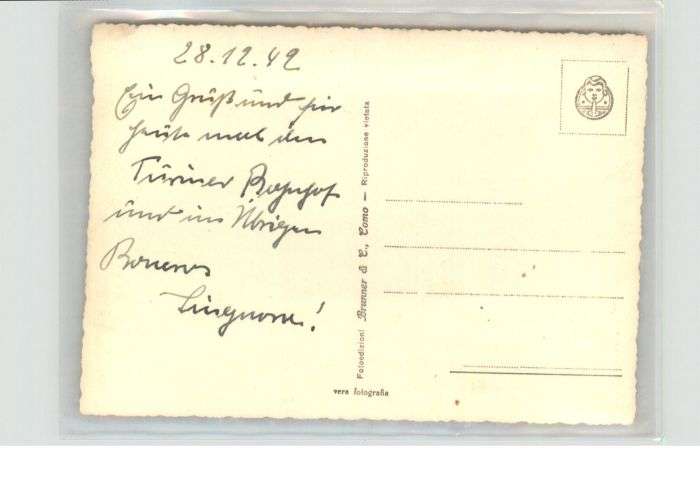 28.12.42
Ein Gruß und für
heute mal den
Turiner Bahnhof
und im Übrigen
Fotoedizioni Brunner & C., Como - Riproduzione vietata
vera fotografia